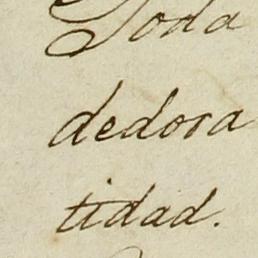 Toda
dedora
tidad.